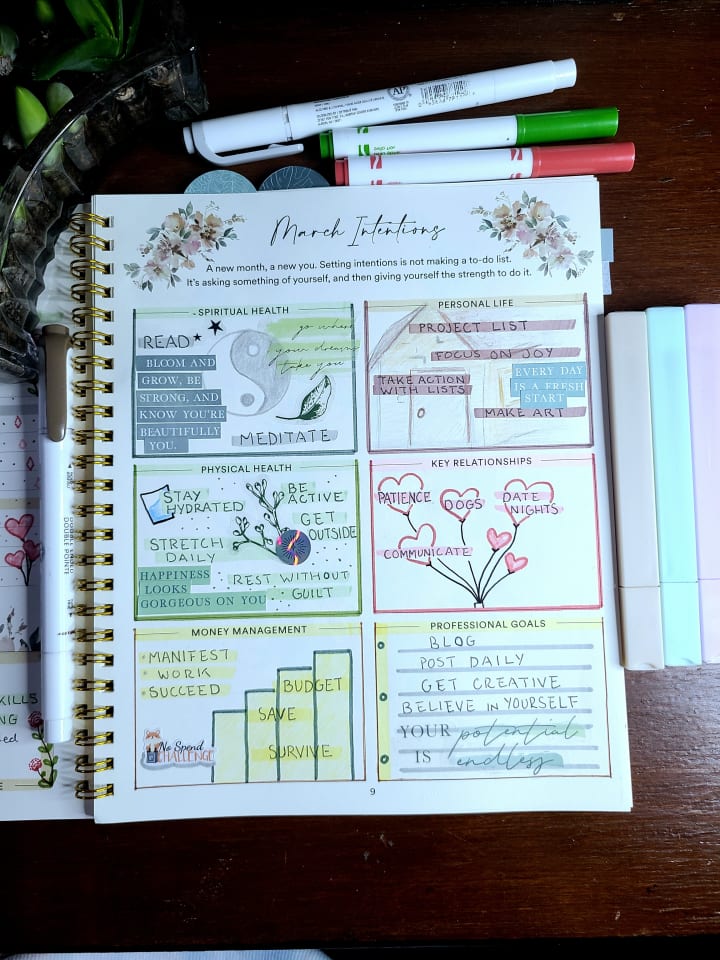 March Intentions
A new month, a new you. Setting intentions is not making a to-do list.
It's asking something of yourself, and then giving yourself the strength to do it.
SPIRITUAL HEALTH
READ
go where
your dreams
take you
BLOOM AND
GROW, BE
STRONG, AND
KNOW YOU'RE
BEAUTIFULLY
YOU.
MEDITATE
PERSONAL LIFE
PROJECT LIST
FOCUS ON JOY
TAKE ACTION
WITH LISTS
EVERY DAY
IS A FRESH
START
MAKE ART
PHYSICAL HEALTH
STAY
HYDRATED
BE
ACTIVE
GET
OUTSIDE
STRETCH
DAILY
HAPPINESS
LOOKS
GORGEOUS ON YOU
REST WITHOUT
GUILT
KEY RELATIONSHIPS
PATIENCE
DOGS
DATE
NIGHTS
COMMUNICATE
MONEY MANAGEMENT
• MANIFEST
• WORK
• SUCCEED
BUDGET
SAVE
SURVIVE
No Spend
CHALLENGE
PROFESSIONAL GOALS
BLOG
POST DAILY
GET CREATIVE
BELIEVE IN YOURSELF
YOUR potential
IS endless
9